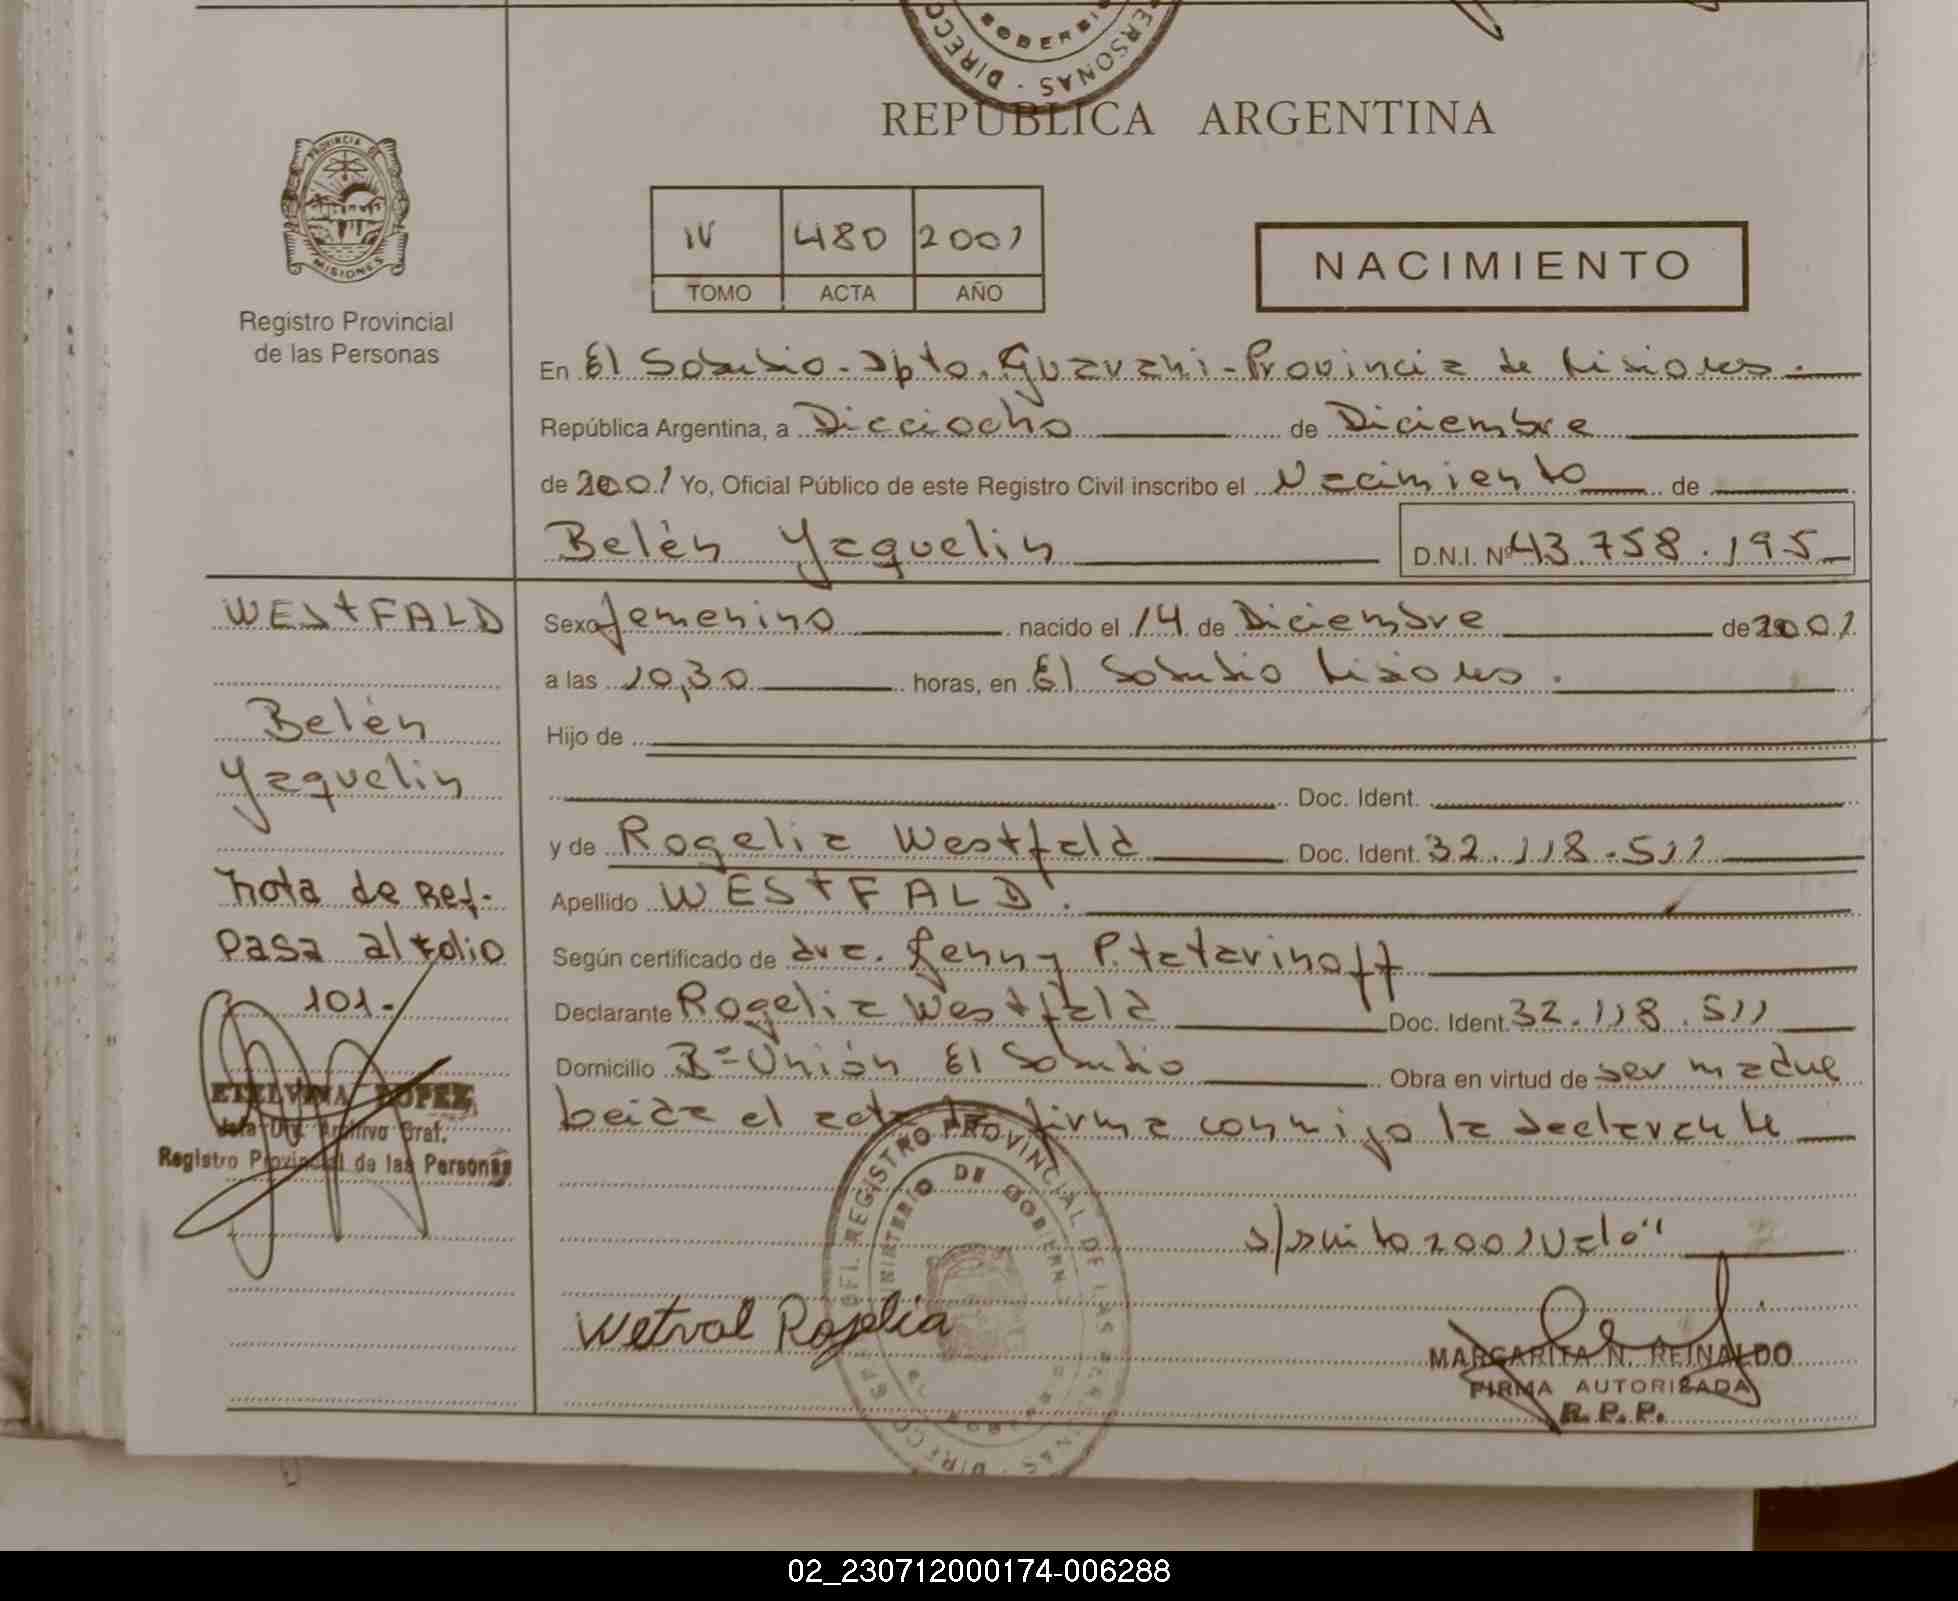 DIRECC
SOBERBIO
PERSONAS
REPUBLICA ARGENTINA
PROVINCIA DE
MISIONES
IV 480 2001
TOMO ACTA AÑO
NACIMIENTO
Registro Provincial
de las Personas
En El Soberbio - Dpto. Guarani - Provincia de Misiones.
República Argentina, a Dieciocho de Diciembre
de 2001 Yo, Oficial Público de este Registro Civil inscribo el Nacimiento de
Belén Yaquelin D.N.I. Nº 43.758.195
WEStFALD
Belén
Yaquelin
Nota de Ref.
Pasa al folio
101.-
ETELVINA LOPEZ
Jefa Div. Archivo Gral.
Registro Provincial de las Personas
Sexo femenino nacido el 14 de Diciembre de 2001
a las 10,30 horas, en El Soberbio Misiones.
Hijo de
Doc. Ident.
y de Rogelia Westfald Doc. Ident. 32.118.511
Apellido WEStFALD.
Según certificado de dra. Jenny P. tatarinoff
Declarante Rogelia Westfald Doc. Ident. 32.118.511
Domicilio Bº Unión El Soberbio Obra en virtud de ser madre
Leida el acta la firma conmigo la declarante
s/ 2001 Vale"
OFI. REGISTRO PROVINCIAL DE LAS PERSONAS - DIRECC
MINISTERIO DE GOBIERNO
Wetval Rogelia
MARGARITA N. REINALDO
FIRMA AUTORIZADA
R.P.P.
02_230712000174-006288